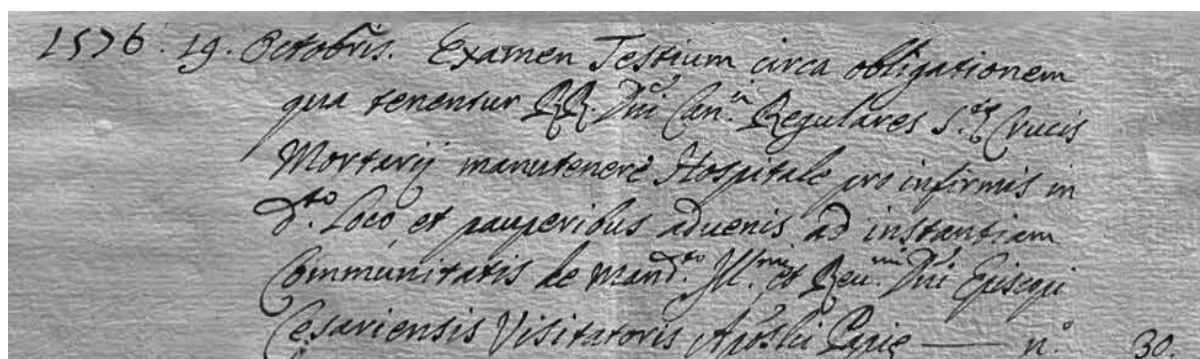 1576. 19. Octobris. Examen Testium circa obligationem
qua tenentur RR. Dni Can.ci Regulares S.tę Crucis
Mortarij manutenere Hospitale pro infirmis in
d.to Loco et pauperibus aduenis ad instantiam
Communitatis de mand.to Ill.mi et Reu.mi Dni Episcopi
Cesariensis Visitatoris Aposlici Papię — n.o 30.